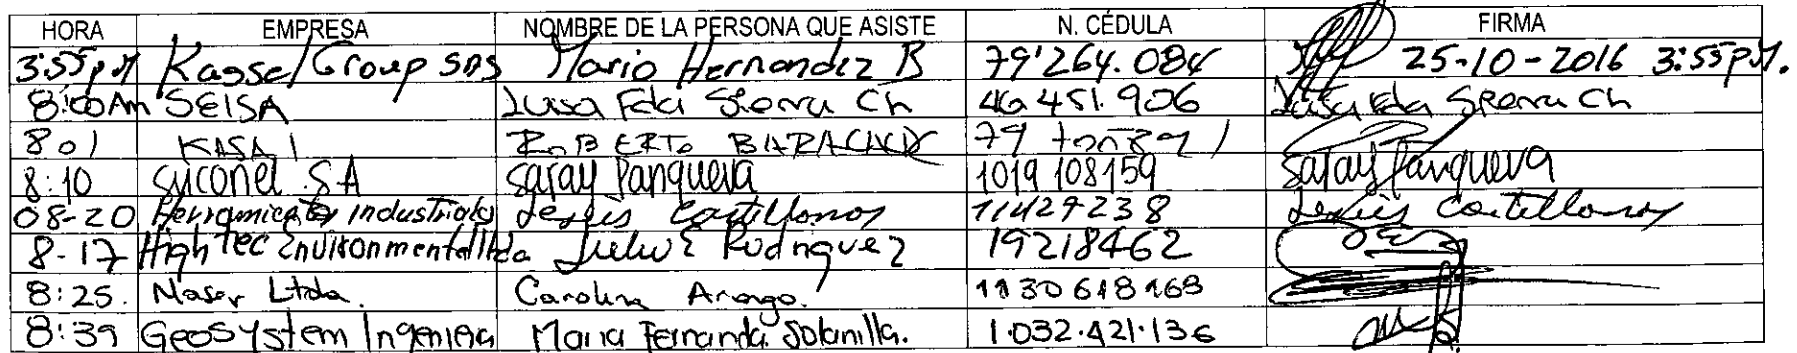 HORA EMPRESA NOMBRE DE LA PERSONA QUE ASISTE N. CÉDULA FIRMA
3:55pM Kassel Group SAS Mario Hernandez B 79'264.084 25-10-2016 3:55pM.
8:00Am SEISA Luisa Fda Sierra Ch 46.451.906 Luisa Fda Sierra Ch
801 KASAI ROBERTO 79
8:10 Suconel SA Saray Pangueva 1019 108159 Saray Pangueva
08-20 Herramientas industriales Jesús Castellanos 11427238 Jesús Castellanos
8-17 High Tec Environmental ltda Julio E Rodriguez 19218462
8:25. Naser Ltda. Carolina Arango. 1130618168
8:39 Geosystem Ingenieria Maria Fernanda Solanilla. 1.032.421.136